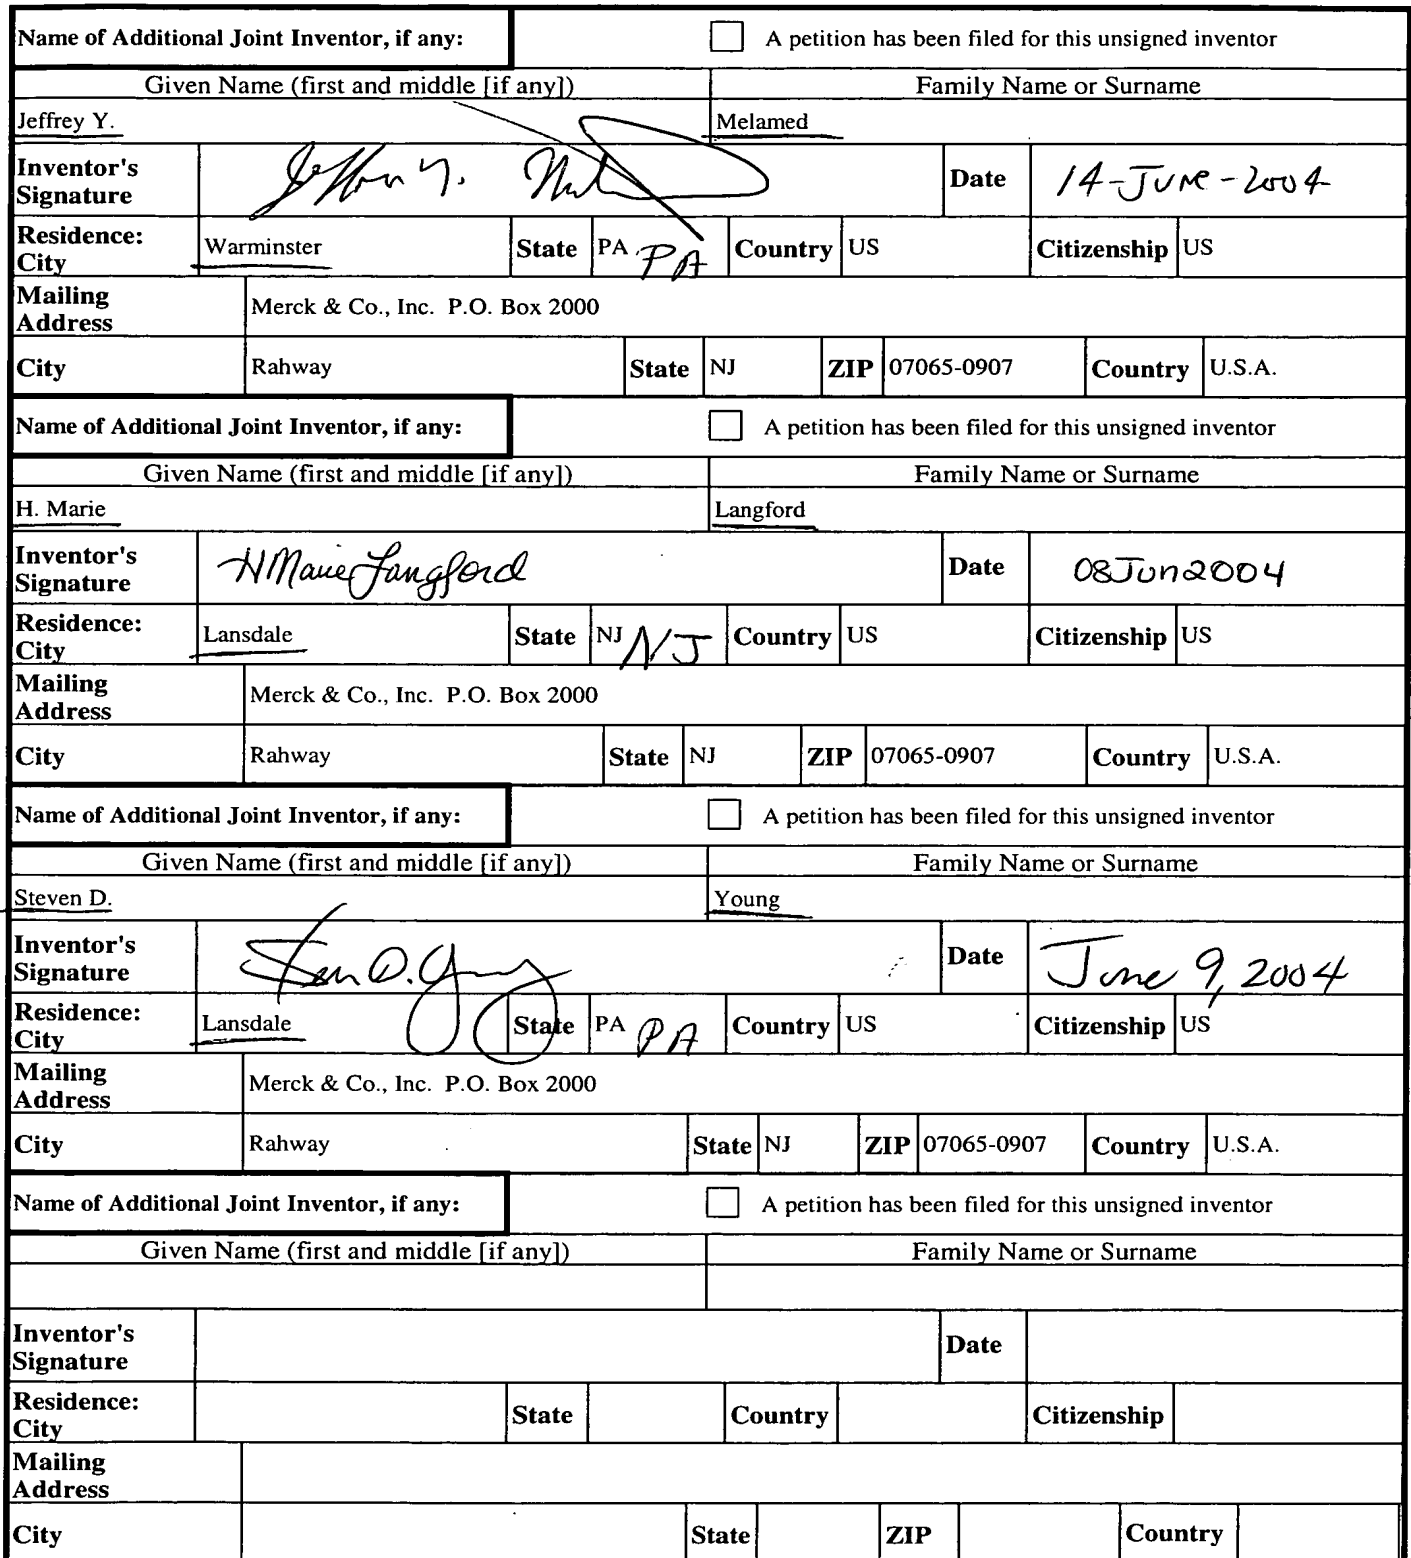 Name of Additional Joint Inventor, if any: A petition has been filed for this unsigned inventor
Given Name (first and middle [if any]) Family Name or Surname
Jeffrey Y. Melamed
Inventor's Signature Jeffrey Y. Date 14-June-2004
Residence: City Warminster State PA PA Country US Citizenship US
Mailing Address Merck & Co., Inc. P.O. Box 2000
City Rahway State NJ ZIP 07065-0907 Country U.S.A.
Name of Additional Joint Inventor, if any: A petition has been filed for this unsigned inventor
Given Name (first and middle [if any]) Family Name or Surname
H. Marie Langford
Inventor's Signature H Marie Langford Date 08Jun2004
Residence: City Lansdale State NJ NJ Country US Citizenship US
Mailing Address Merck & Co., Inc. P.O. Box 2000
City Rahway State NJ ZIP 07065-0907 Country U.S.A.
Name of Additional Joint Inventor, if any: A petition has been filed for this unsigned inventor
Given Name (first and middle [if any]) Family Name or Surname
Steven D. Young
Inventor's Signature Steven D. Young Date June 9, 2004
Residence: City Lansdale State PA PA Country US Citizenship US
Mailing Address Merck & Co., Inc. P.O. Box 2000
City Rahway State NJ ZIP 07065-0907 Country U.S.A.
Name of Additional Joint Inventor, if any: A petition has been filed for this unsigned inventor
Given Name (first and middle [if any]) Family Name or Surname
Inventor's Signature Date
Residence: City State Country Citizenship
Mailing Address
City State ZIP Country